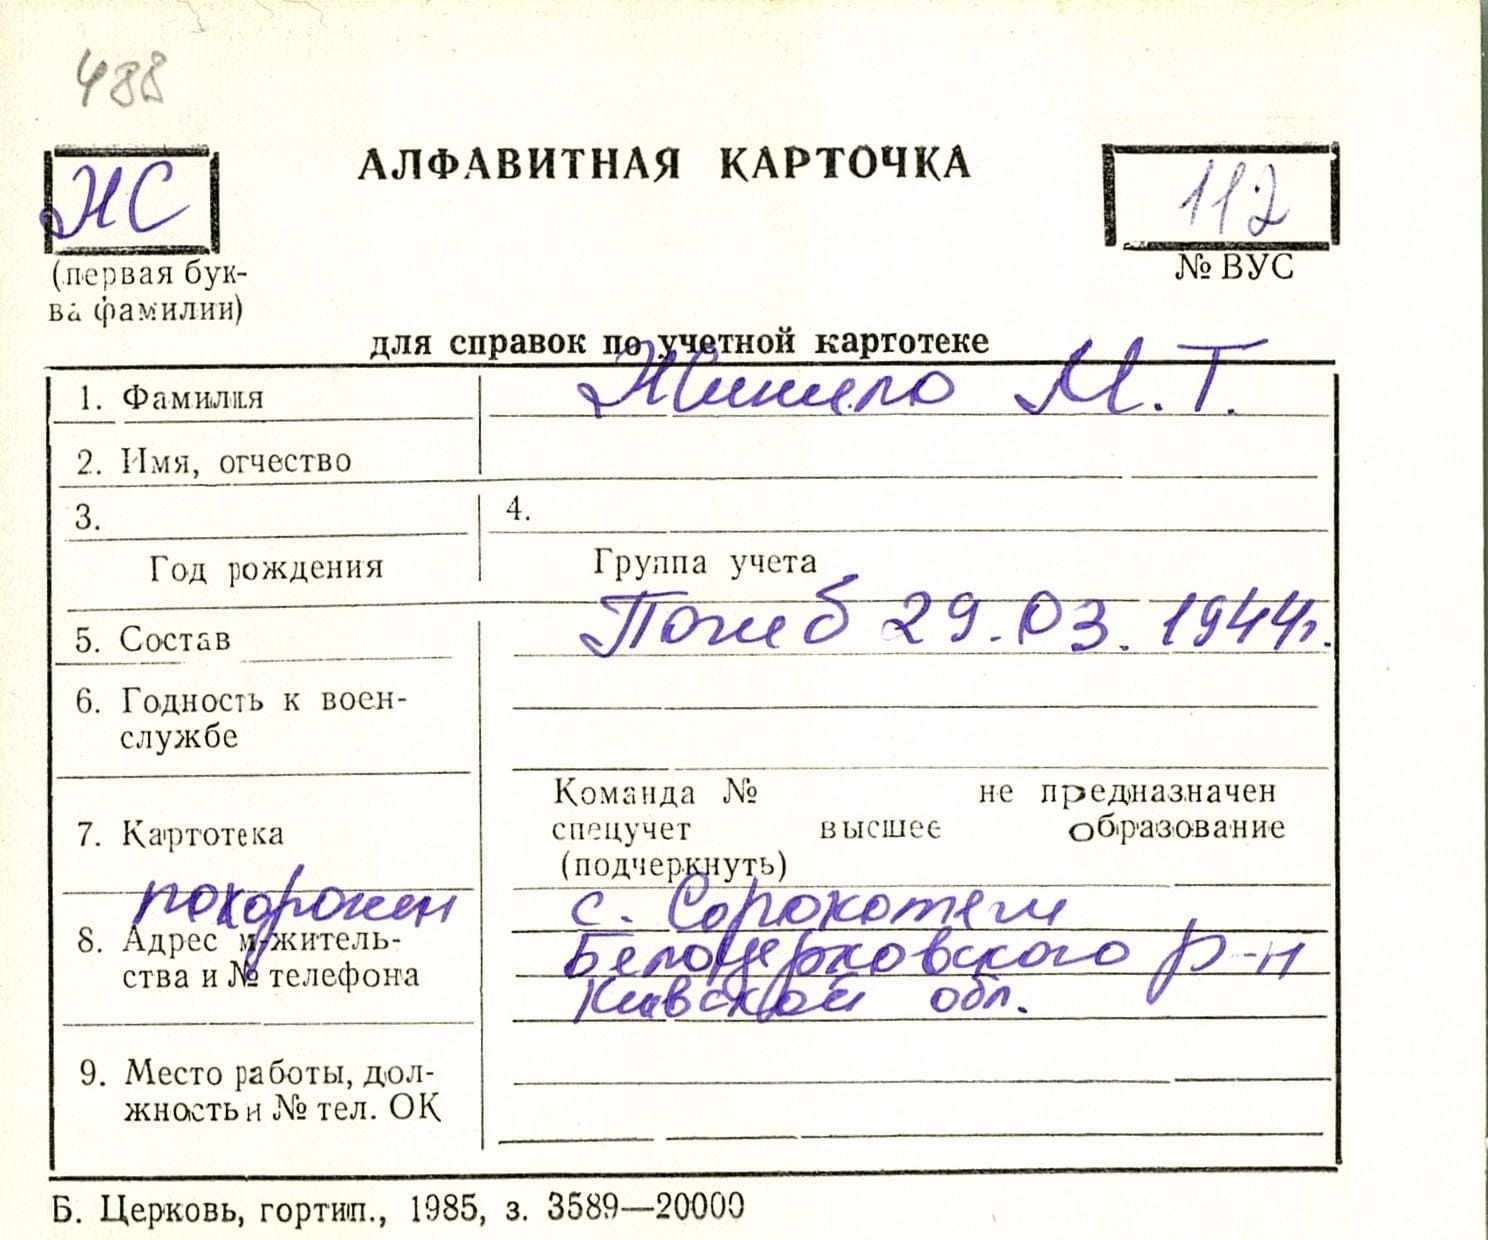 488
Ж
АЛФАВИТНАЯ КАРТОЧКА
112
(первая бук-
ва фамилии)
№ ВУС
для справок по учетной картотеке
1. Фамилия М. Т.
2. Имя, отчество
3. 4.
Год рождения Группа учета
5. Состав Погиб 29.03.1944г.
6. Годность к воен-
службе
Команда № не предназначен
7. Картотека спецучет высшее образование
(подчеркнуть)
похоронен с. Сорокотяги
8. Адрес м-житель- Белоцерковского р-н
ства и № телефона Киевской обл.
9. Место работы, дол-
жность и № тел. ОК
Б. Церковь, гортип., 1985, з. 3589—20000